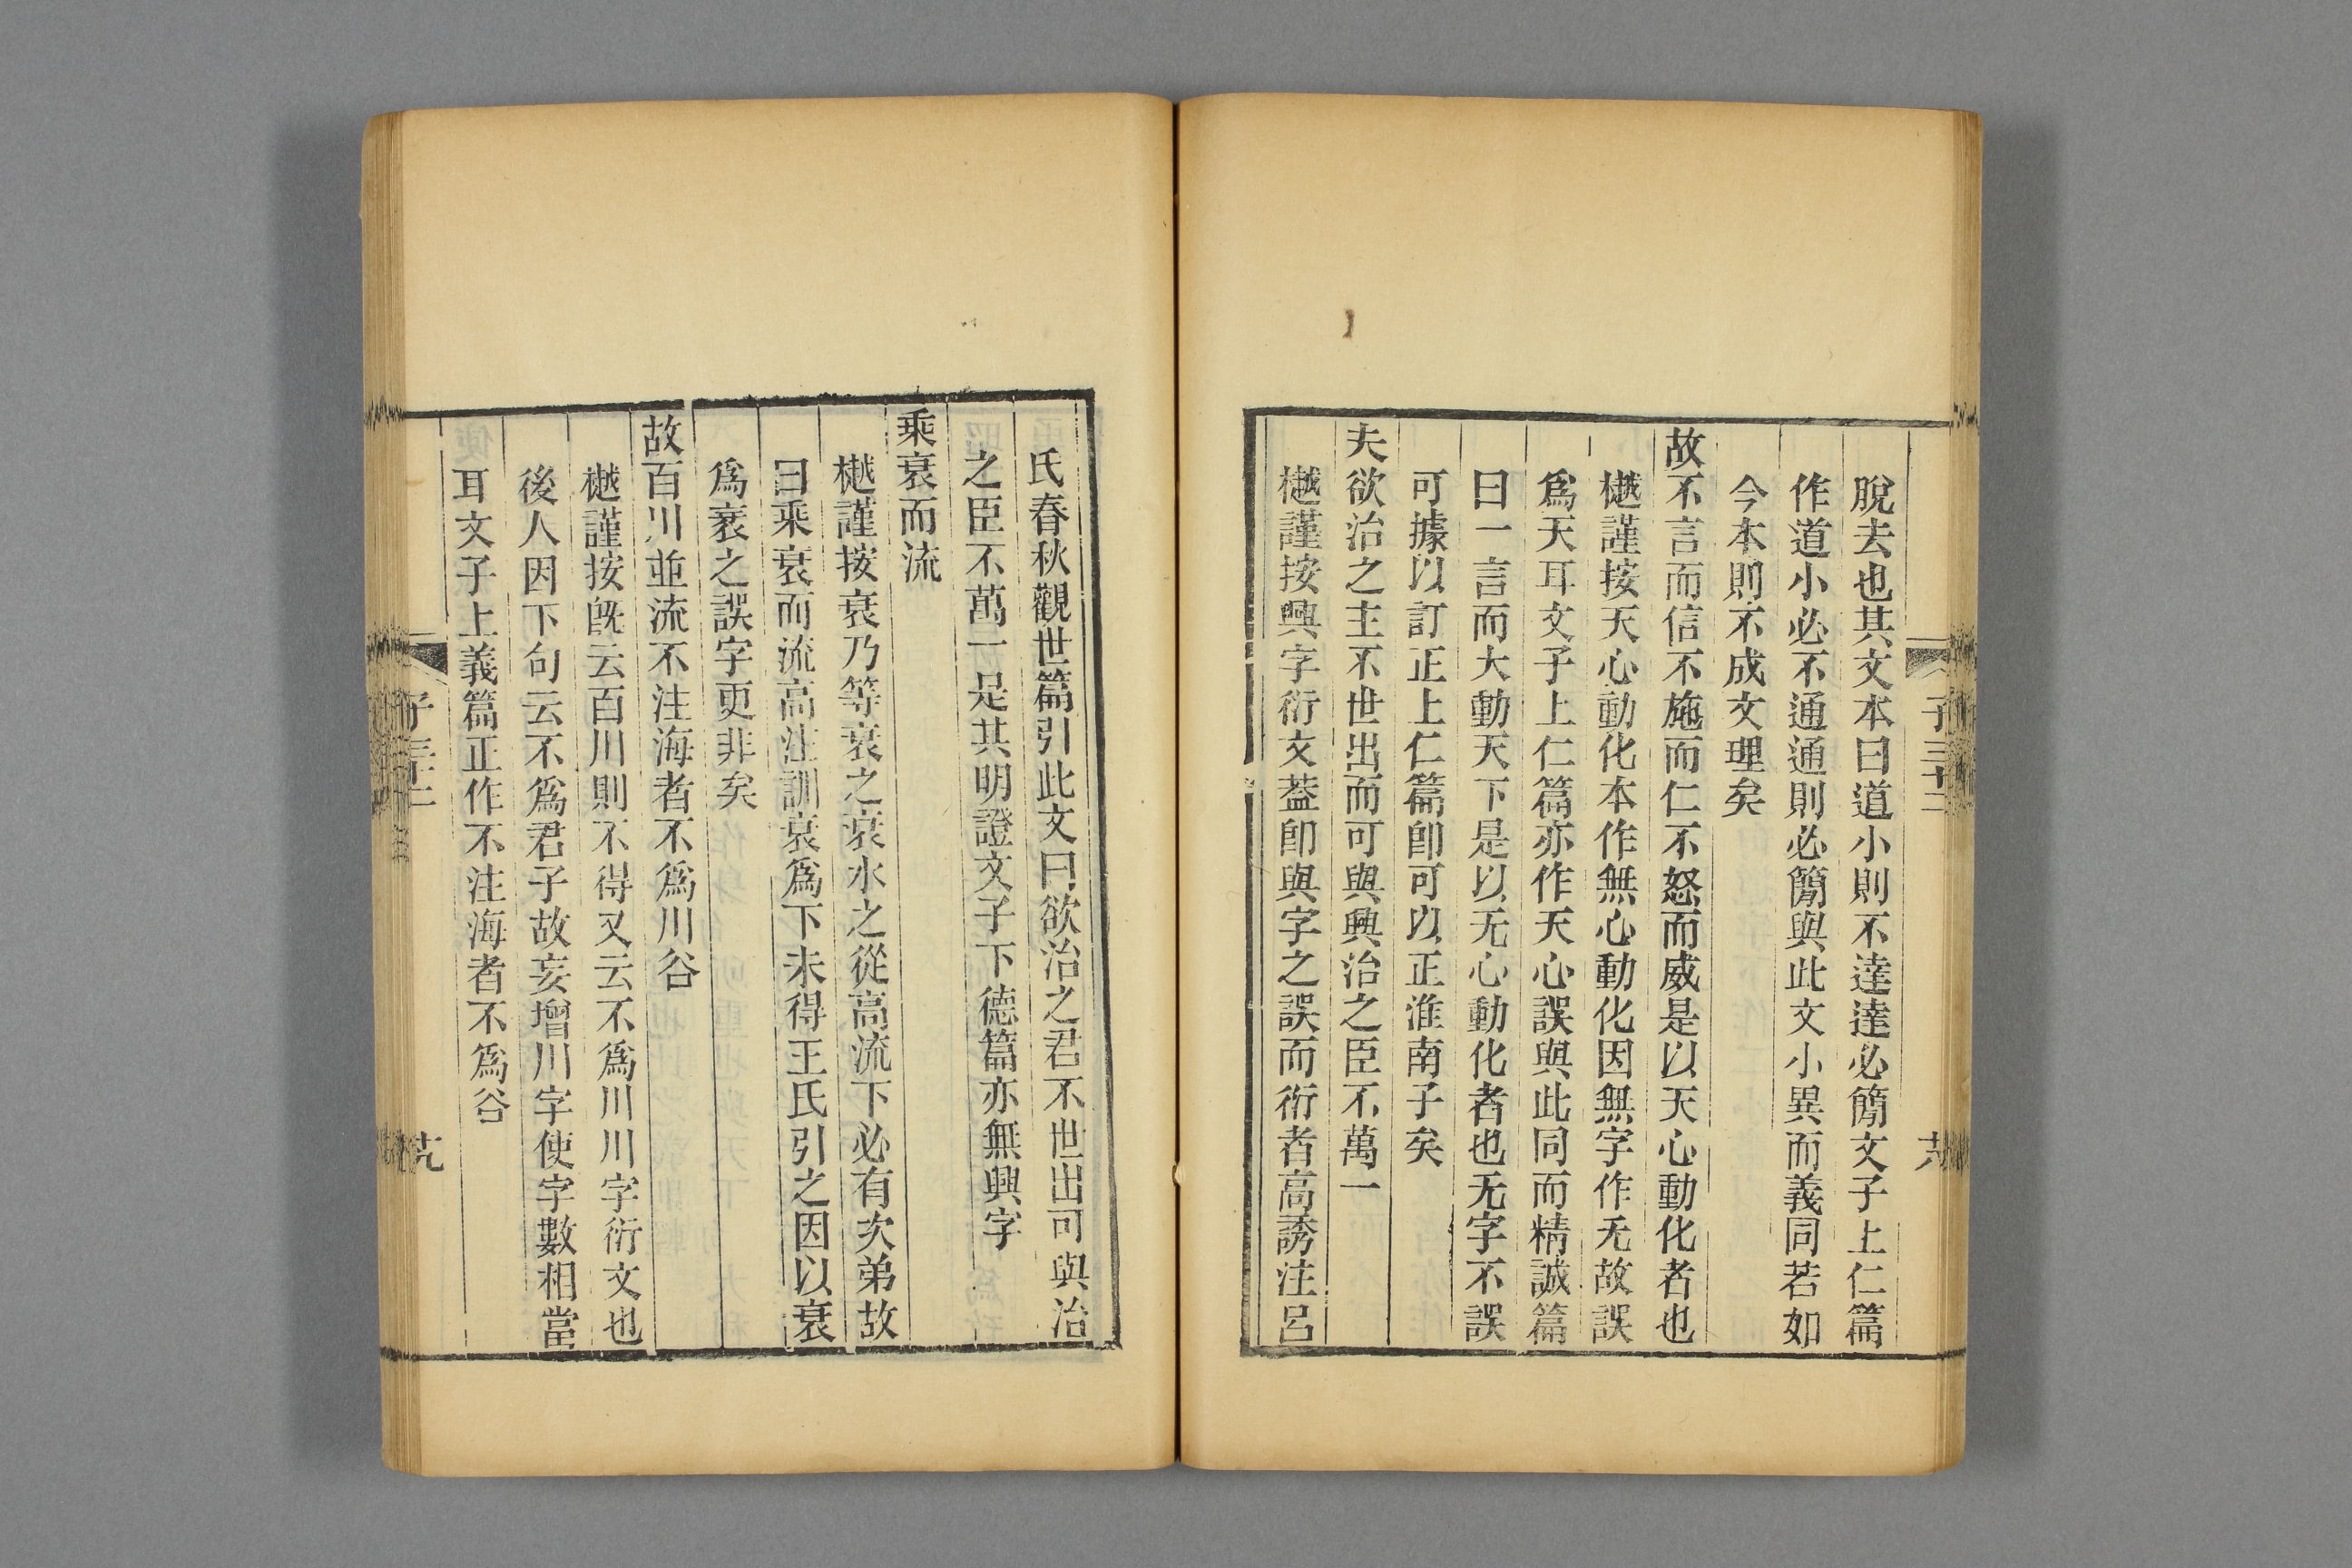 脫去也其文本曰道小則不達達必簡文子上仁篇
作道小必不通通則必簡與此文小異而義同若如
今本則不成文理矣
故不言而信不施而仁不怒而威是以天心動化者也
樾謹按天心動化本作無心動化因無字作无故誤
爲天耳文子上仁篇亦作天心誤與此同而精誠篇
曰一言而大動天下是以无心動化者也无字不誤
可據以訂正上仁篇卽可以正淮南子矣
夫欲治之主不世出而可與興治之臣不萬一
樾謹按興字衍文葢卽與字之誤而衍者高誘注呂
氏春秋觀世篇引此文曰欲治之君不世出可與治
之臣不萬一是其明證文子下德篇亦無興字
乘衰而流
樾謹按衰乃等衰之衰水之從高流下必有次弟故
曰乘衰而流高注訓衰爲下未得王氏引之因以衰
爲衺之誤字更非矣
故百川並流不注海者不爲川谷
樾謹按旣云百川則不得又云不爲川川字衍文也
後人因下句云不爲君子故妄增川字使字數相當
耳文子上義篇正作不注海者不爲谷